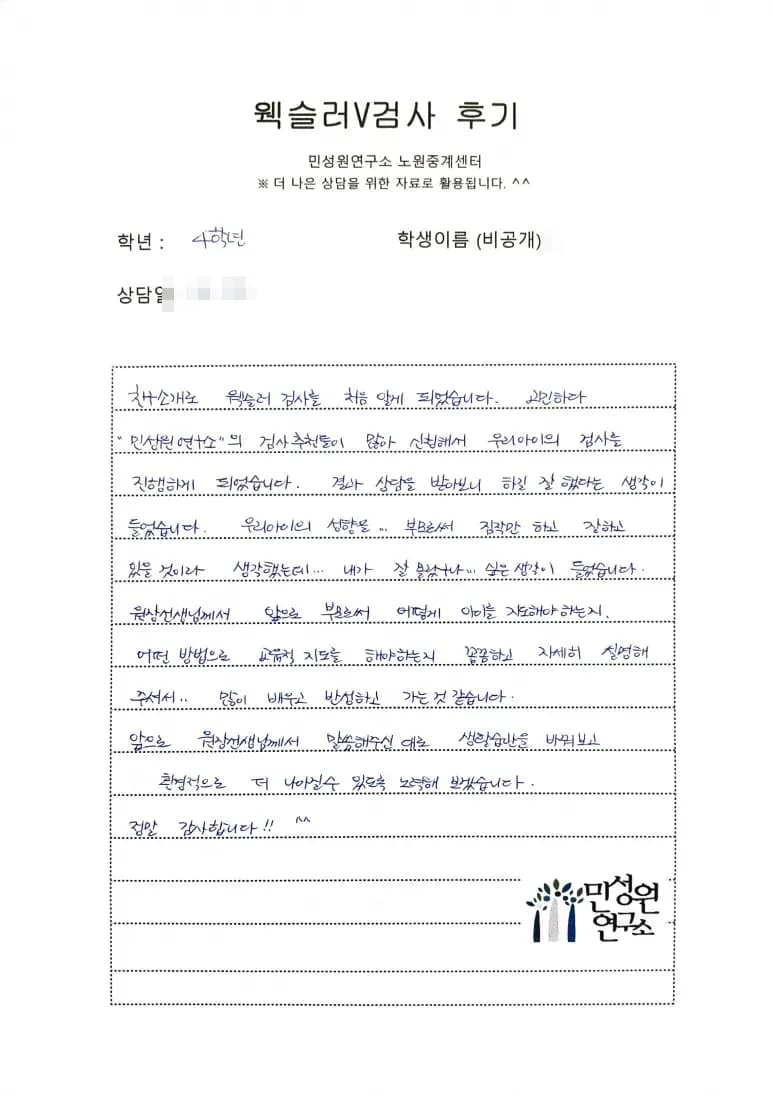 웩슬러V검사 후기
민성원연구소 노원중계센터
※ 더 나은 상담을 위한 자료로 활용됩니다. ^^
학년 : 4학년 학생이름 (비공개)
상담일
친구소개로 웩슬러 검사를 처음 알게 되었습니다. 고민하다
"민성원연구소"의 검사추천들이 많아 신청해서 우리아이의 검사를
진행하게 되었습니다. 결과 상담을 받아보니 하길 잘 했다는 생각이
들었습니다. 우리아이의 성향을... 부모로써 짐작만 하고 잘하고
있을 것이라 생각했는데... 내가 잘 몰랐구나... 싶은 생각이 들었습니다.
원장선생님께서 앞으로 부모로써 어떻게 아이를 지도해야 하는지,
어떤 방법으로 교육적 지도를 해야하는지 꼼꼼하고 자세히 설명해
주셔서.. 많이 배우고 반성하고 가는 것 같습니다.
앞으로 원장선생님께서 말씀해주신 대로 생활습관을 바꿔보고
환경적으로 더 나아질수 있도록 노력해 보겠습니다.
정말 감사합니다!! ^^
민성원
연구소